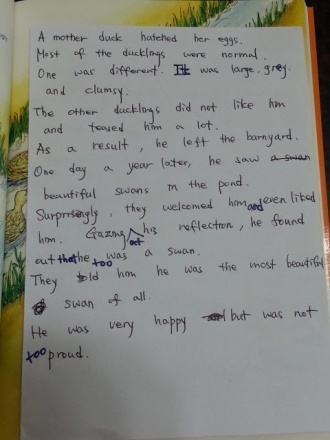 A mother duck hatched her eggs.
Most of the ducklings were normal.
One was different. It was large, grey.
and clumsy.
The other ducklings did not like him
and teased him a lot.
As a result, he left the barnyard.
One day a year later, he saw a swan
beautiful swans in the pond.
Surprisingly, they welcomed him and even liked
him. Gazing at his reflection, he found
out that he too was a swan.
They told him he was the most beautiful
swan of all.
He was very happy but was not
too proud.